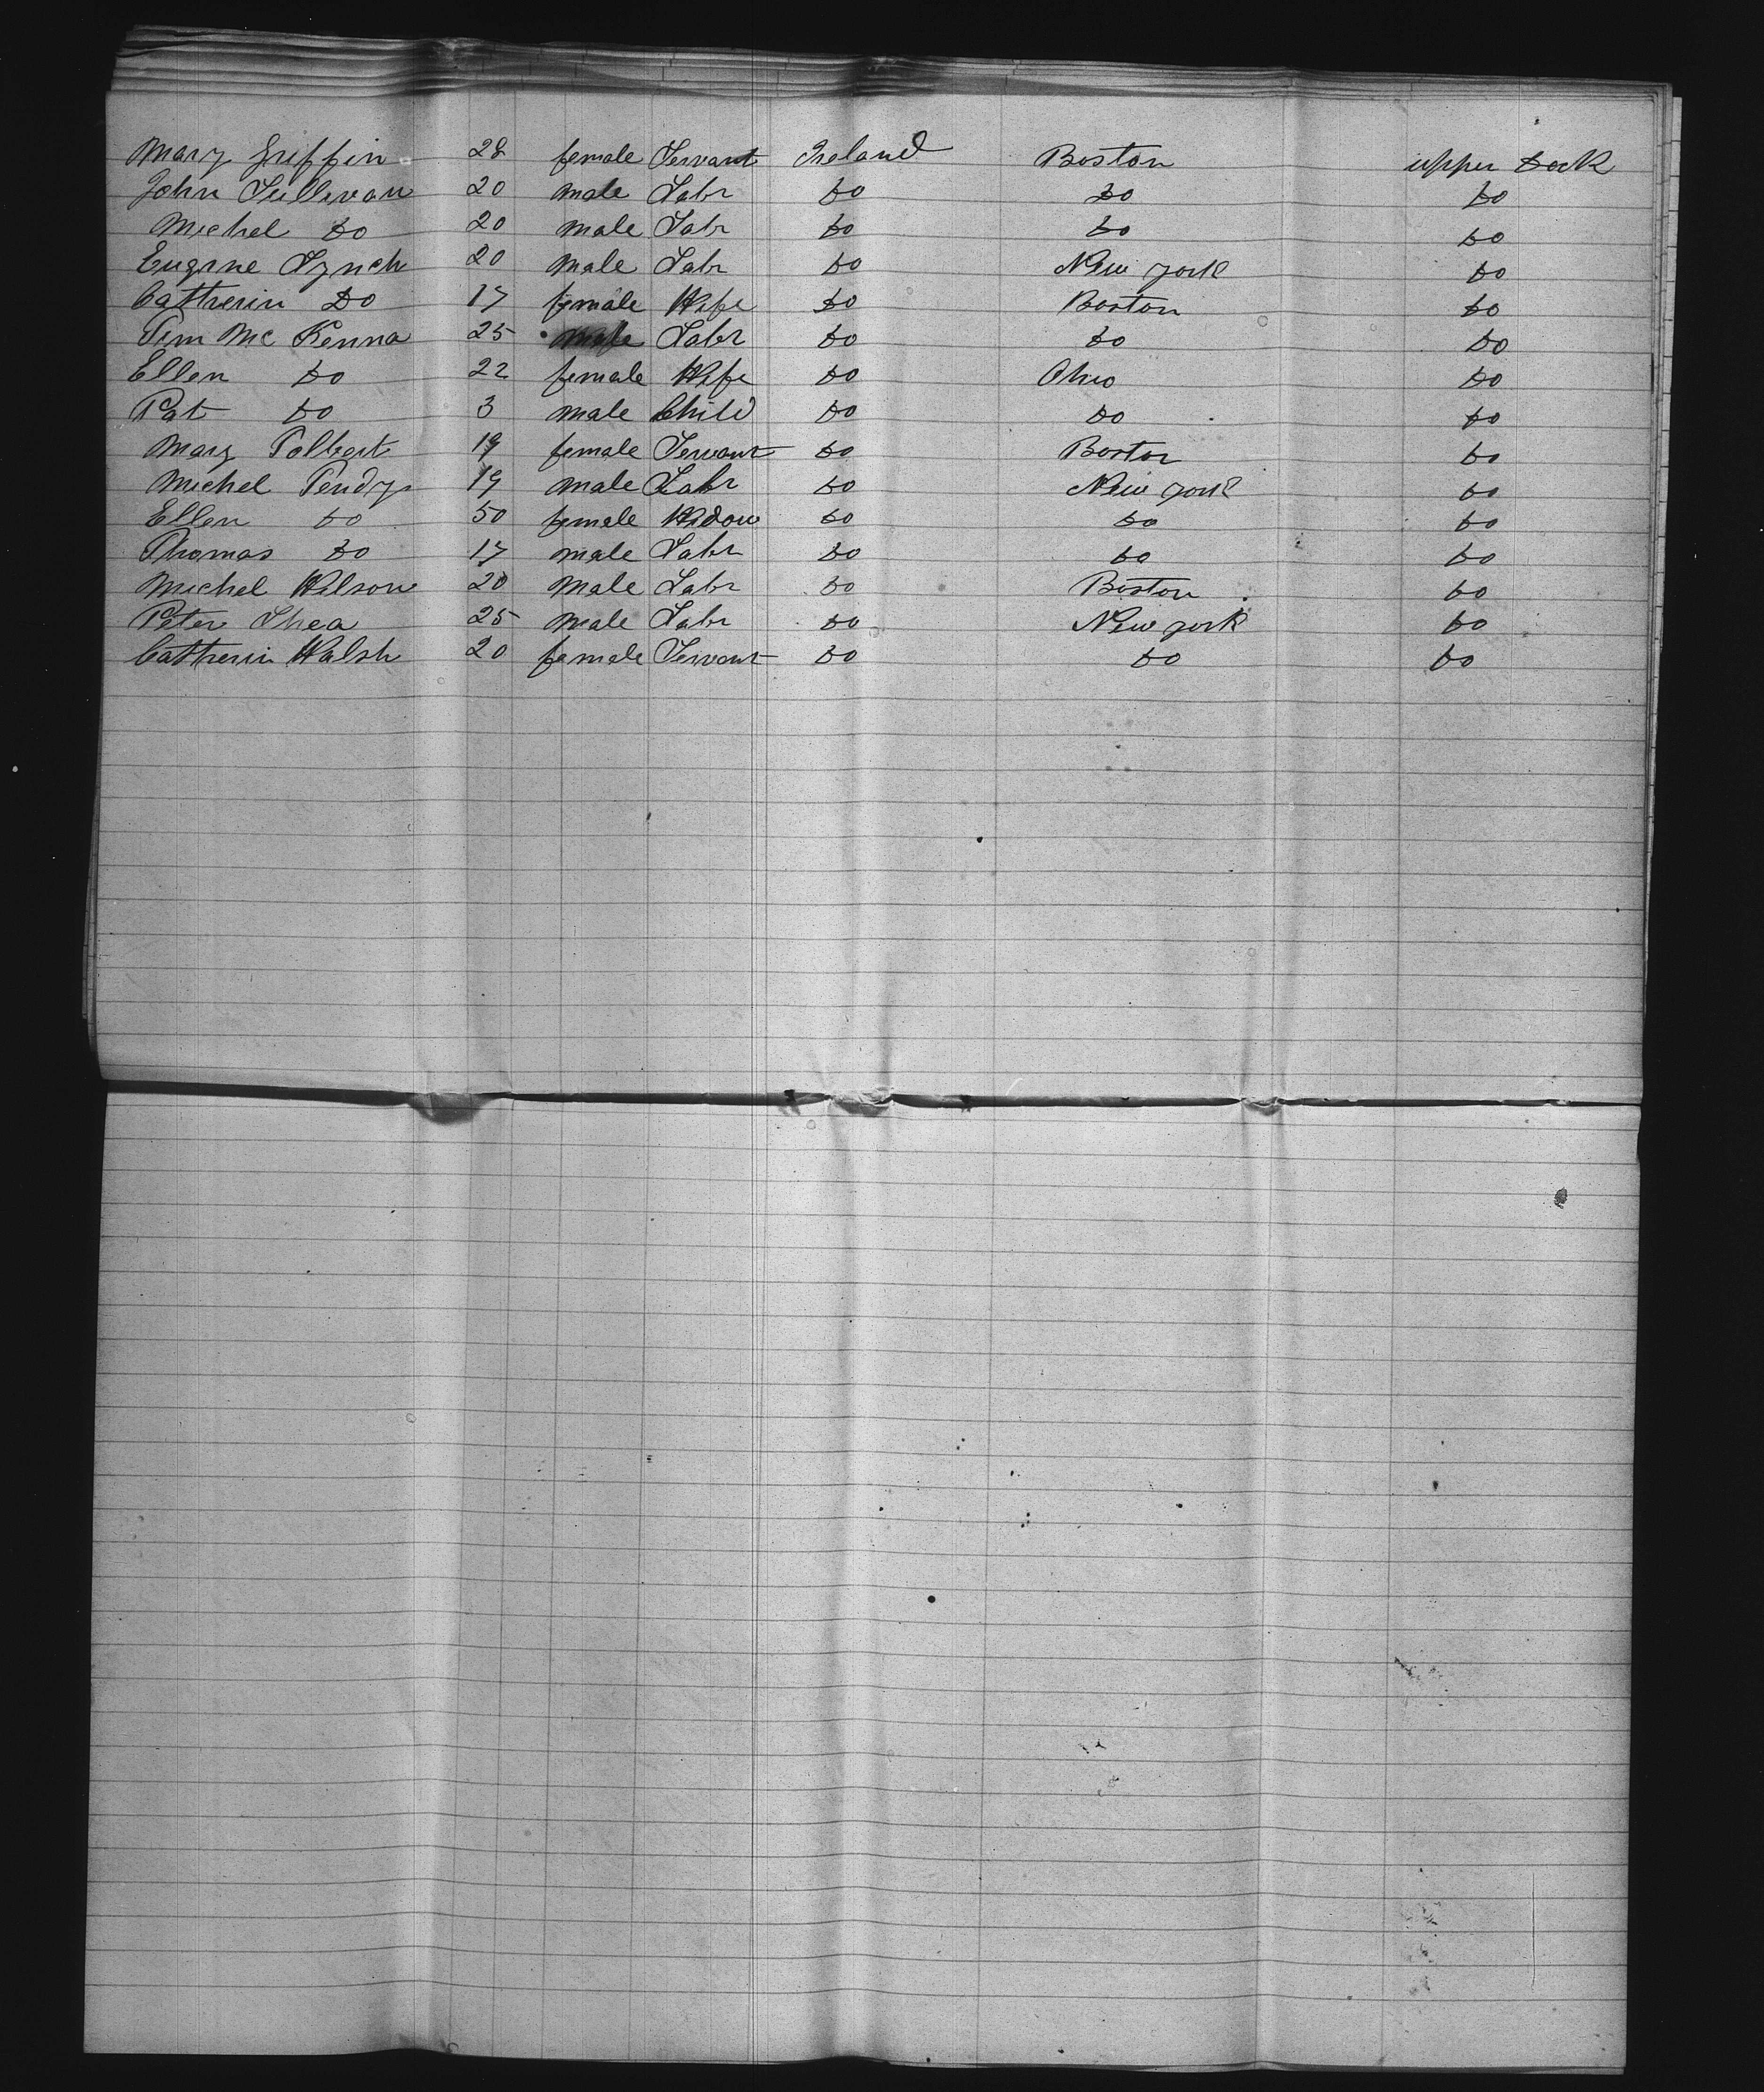 Mary Griffin 28 female Servant Ireland Boston upper Deck
John Sullivan 20 male Labr Do Do Do
Michel Do 20 male Labr Do Do Do
Eugene Lynch 20 male Labr Do New york Do
Catherin Do 17 female Wife Do Boston Do
Tim Mc Kenna 25 male Labr Do Do Do
Ellen Do 22 female Wife Do Ohio Do
Pat Do 3 male Child Do Do Do
Mary Tolbert 19 female Servant Do Boston Do
Michel Pendy 19 male Labr Do New york Do
Ellen Do 50 female Widow Do Do Do
Thomas Do 17 male Labr Do Do Do
Michel Wilson 20 male Labr Do Boston Do
Peter Shea 25 male Labr Do New york Do
Catherin Walsh 20 female Servant Do Do Do